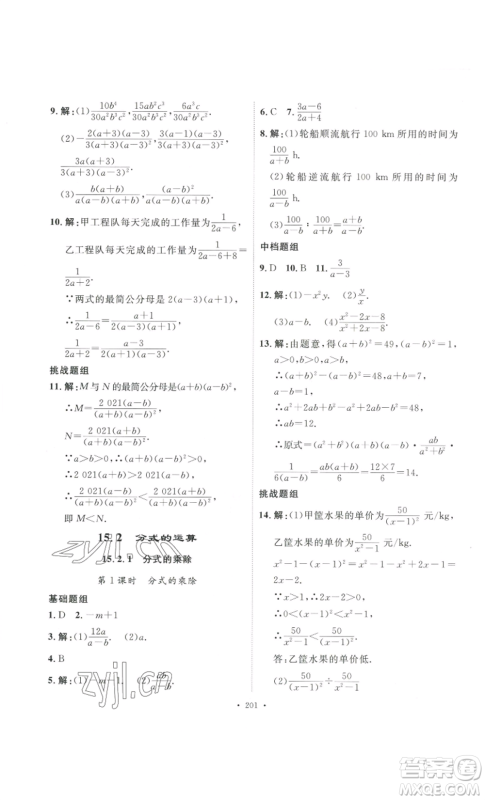 9. 解：(1) 10b³/30a²b²c³, 15ab²c²/30a²b²c³, 6a³c/30a²b²c³.
(2) -2(a+3)(a-3)/3(a-3)(a+3)², 3(a-1)(a-3)/3(a-3)(a+3)²,
3a(a+3)/3(a-3)(a+3)².
(3) b(a+b)/(a+b)(a-b)², (a-b)²/(a+b)(a-b)².
10. 解：甲工程队每天完成的工作量为 1/2a-6,
乙工程队每天完成的工作量为 1/2a-6+8 =
1/2a+2.
∵两式的最简公分母是 2(a+1)(a-3),
∴ 1/2a-6 = a+1/2(a+1)(a-3),
1/2a+2 = a-3/2(a+1)(a-3).
挑战题组
11. 解：M与N的最简公分母是(a+b)(a-b)²,
∴M= 2 021(a+b)/(a+b)(a-b)²,
N= 2 021(a-b)/(a+b)(a-b)².
∵a>b>0, ∴a+b>a-b>0,
∴2 021(a+b)>2 021(a-b)>0.
∴ 2 021(a-b)/(a+b)(a-b)² < 2 021(a+b)/(a+b)(a-b)²,
即 M<N.
15.2 分式的运算
15.2.1 分式的乘除
第1课时 分式的乘除
基础题组
1. D 2. -m+1
3. 解：(1) 12a/b. (2)a.
4. B
5. 解：(1)-m-1. (2)
6. C 7. 3a-6/2a+4
8. 解：(1)轮船顺流航行 100 km 所用的时间为
100/a+b h.
(2)轮船逆流航行 100 km 所用的时间为
100/a-b h.
(3) 100/a-b ÷ 100/a+b = a+b/a-b.
中档题组
9. D 10. B 11. 3/a-3
12. 解：(1)-x²y. (2) y/x.
(3)a-b. (4) x²-2x-8/x²+2x-8.
13. 解：由题意，得(a+b)²=49, (a-b)²=1,
a>0, b>0, a>b, ∴a+b=7,
a-b=1.
∴(a+b)²-(a-b)²=48,
∴a²+2ab+b²-a²+2ab-b²=48,
∴ab=12.
∴原式=(a+b)²(a-b)² · ab/a+b ·
1/6(a-b) = ab(a+b)(a-b)/6 = 12×7/6 =14.
挑战题组
14. 解：(1)甲筐水果的单价为 50/(x-1)² 元/kg,
乙筐水果的单价为 50/x²-1 元/kg.
∵x>1, ∴(x-1)²-(x²-1)=-2x+2<0,
∴0<(x-1)²<x²-1,
∴ 50/x²-1 < 50/(x-1)².
答：乙筐水果的单价低.
(2) 50/(x-1)² ÷ 50/x²-1 = x+1/x-1.
· 201 ·
zyjl.cn
zyjl.cn
答案圈
MXQE.COM